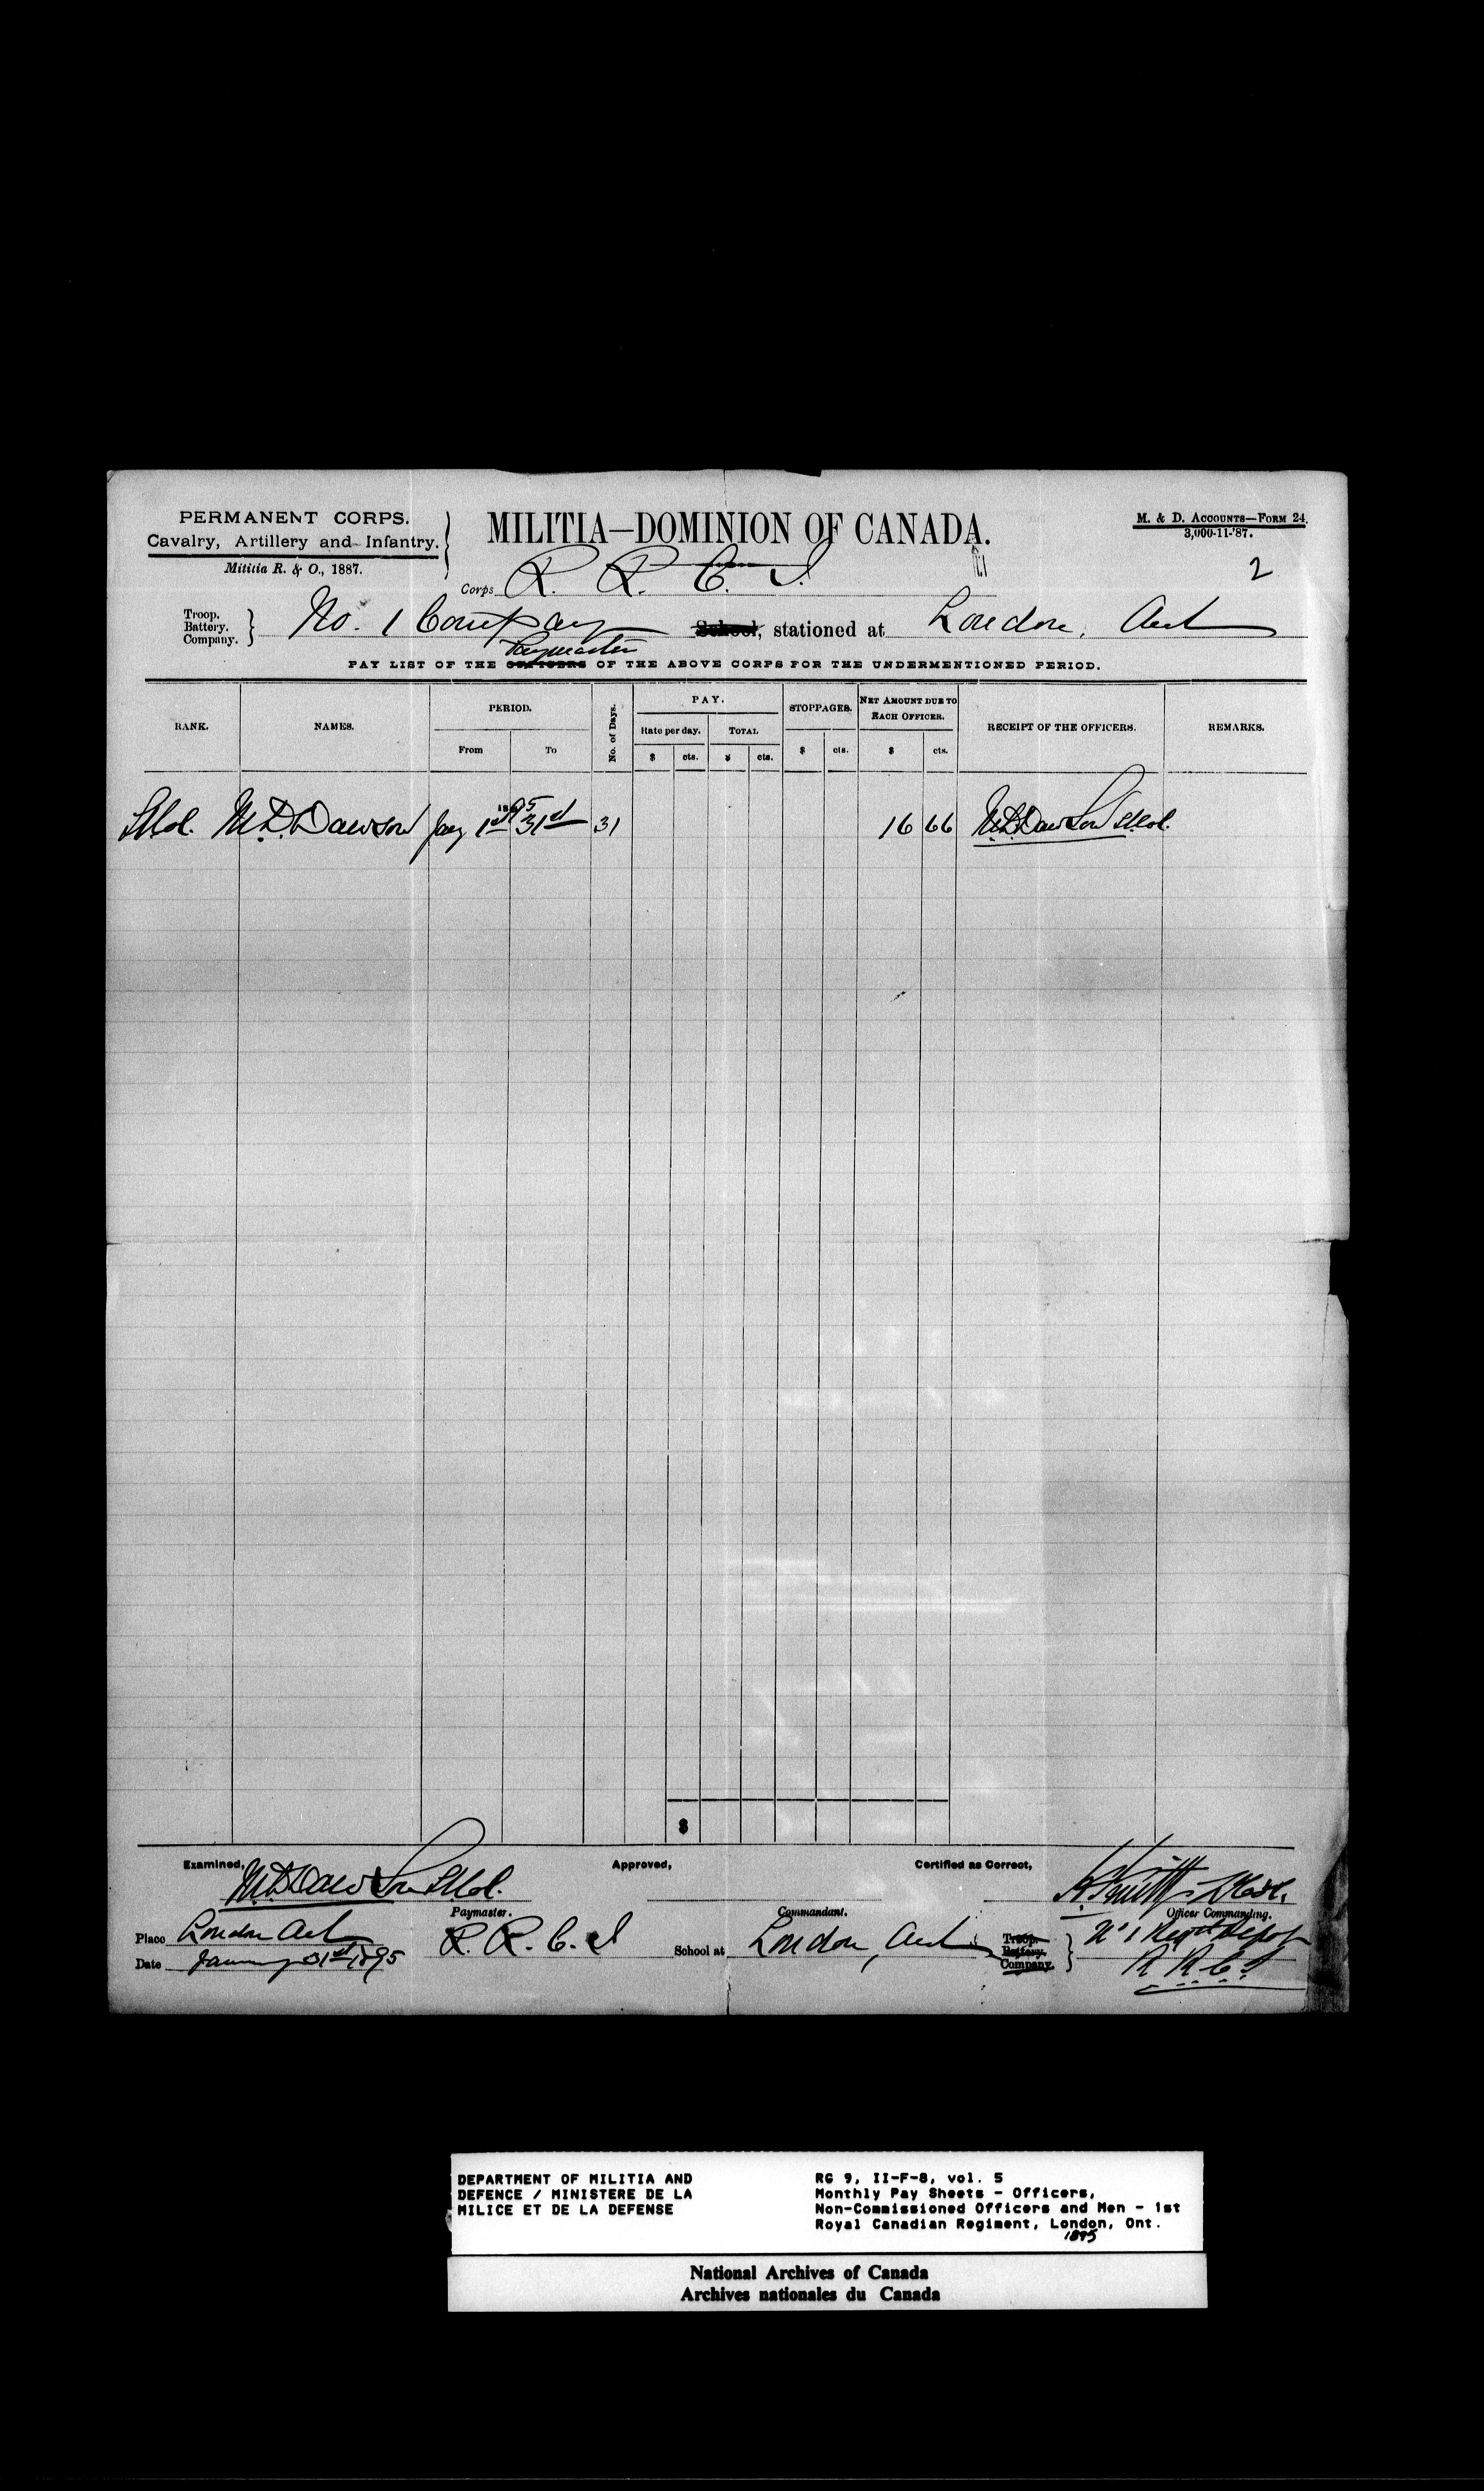 PERMANENT CORPS.
Cavalry, Artillery and Infantry.
Militia R. & O., 1887.
MILITIA—DOMINION OF CANADA.
M. & D. ACCOUNTS—FORM 24.
3,000-11-'87.
2
Corps R. R. C. I.
Troop.
Battery.
Company.
No. 1 Company School, stationed at London, Ont
Paymaster
PAY LIST OF THE OFFICERS OF THE ABOVE CORPS FOR THE UNDERMENTIONED PERIOD.
RANK. NAMES. PERIOD. From To No. of Days. PAY. Rate per day. $ cts. TOTAL $ cts. STOPPAGES. $ cts. NET AMOUNT DUE TO EACH OFFICER. $ cts. RECEIPT OF THE OFFICERS. REMARKS.
1895
Lt Col. M. D. Dawson Jany 1st 31st 31 16 66 M. D. Dawson Lt Col.
$
Examined, M. D. Dawson Lt Col. Approved, Certified as Correct, H Smith Lt Col.
Paymaster. Commandant. Officer Commanding.
Place London Ont R. R. C. I School at London, Ont Troop. Battery. Company. No 1 Regtl Depot
Date January 31st 1895 R R C I
DEPARTMENT OF MILITIA AND
DEFENCE / MINISTERE DE LA
MILICE ET DE LA DEFENSE
RG 9, II-F-8, vol. 5
Monthly Pay Sheets - Officers,
Non-Commissioned Officers and Men - 1st
Royal Canadian Regiment, London, Ont.
1895
National Archives of Canada
Archives nationales du Canada